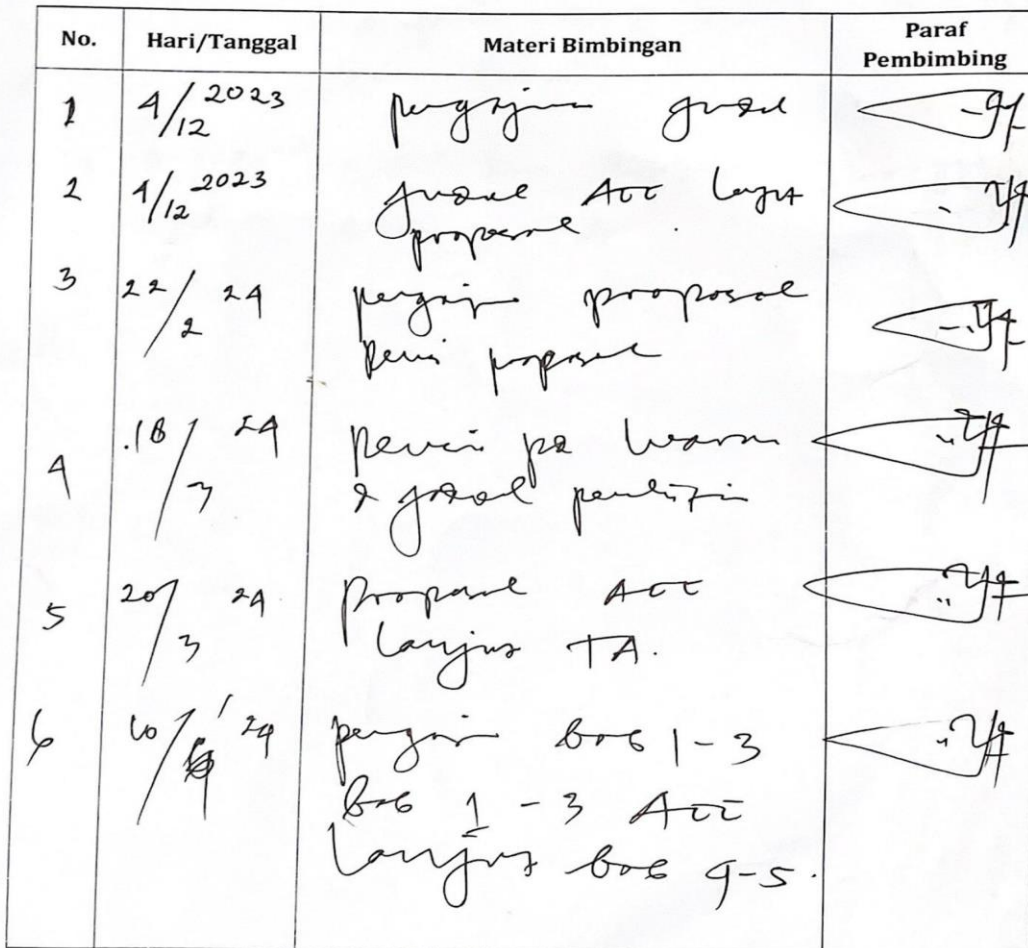 No. Hari/Tanggal Materi Bimbingan Paraf Pembimbing
1 4/12 2023 pengajuan judul
2 4/12 2023 judul ACC lanjut
proposal
3 22/2 24 pengajuan proposal
revisi proposal
4 18/3 24 revisi
& judul
5 20/3 24 Proposal ACC
lanjut TA.
6 10/ 24 pengajuan bab 1-3
bab 1-3 ACC
lanjut bab 4-5.